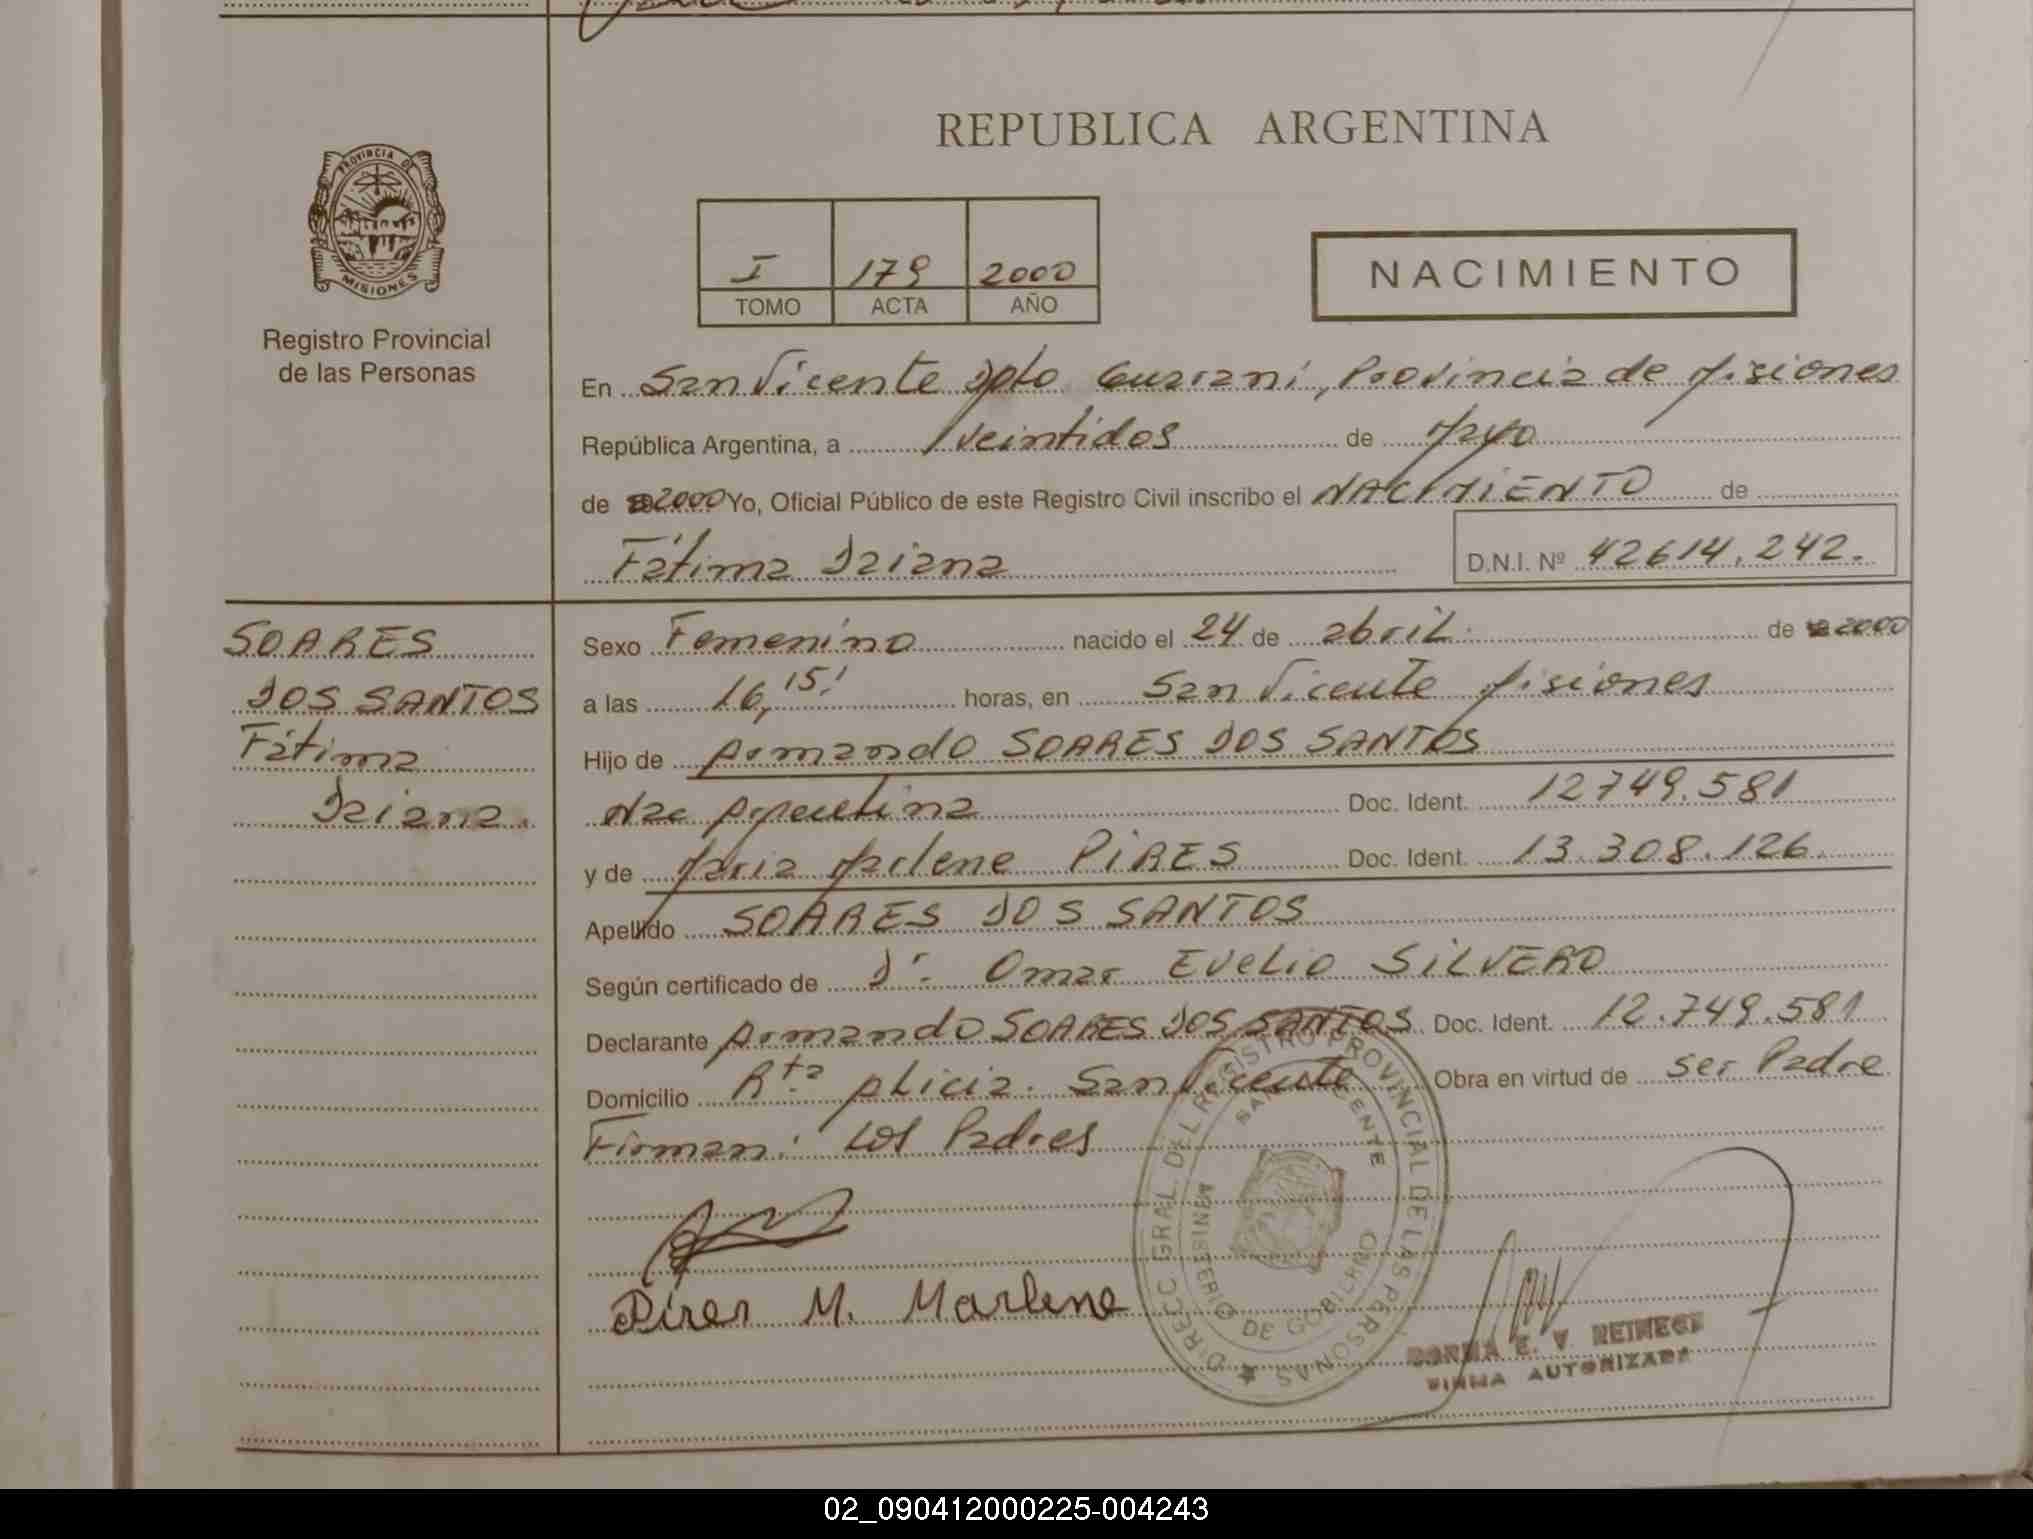 REPUBLICA ARGENTINA
PROVINCIA DE
MISIONES
Registro Provincial
de las Personas
I 179 2000
TOMO ACTA AÑO
NACIMIENTO
En San Vicente Dpto Guarani, Provincia de Misiones
República Argentina, a veintidos de Mayo
de 2000 Yo, Oficial Público de este Registro Civil inscribo el NACIMIENTO de
Fátima Daiana D.N.I. Nº 42614.242.
SOARES
DOS SANTOS
Fátima
Daiana.
Sexo Femenino nacido el 24 de abril de 2000
a las 16,15! horas, en San Vicente Misiones
Hijo de Armando SOARES DOS SANTOS
Nac Argentina Doc. Ident. 12749.581
y de Maria Marlene PIRES Doc. Ident. 13.308.126.
Apellido SOARES DOS SANTOS
Según certificado de Dr. Omar Evelio SILVERO
Declarante Armando SOARES DOS SANTOS Doc. Ident. 12.749.581
Domicilio Rta San Vicente Obra en virtud de ser Padre
Firman: Los Padres
Pires M. Marlene
DIRECC. GRAL. DEL REGISTRO PROVINCIAL DE LAS PERSONAS
SAN VICENTE
DE GOBIERNO
E. V.
FIRMA AUTORIZADA
02_090412000225-004243